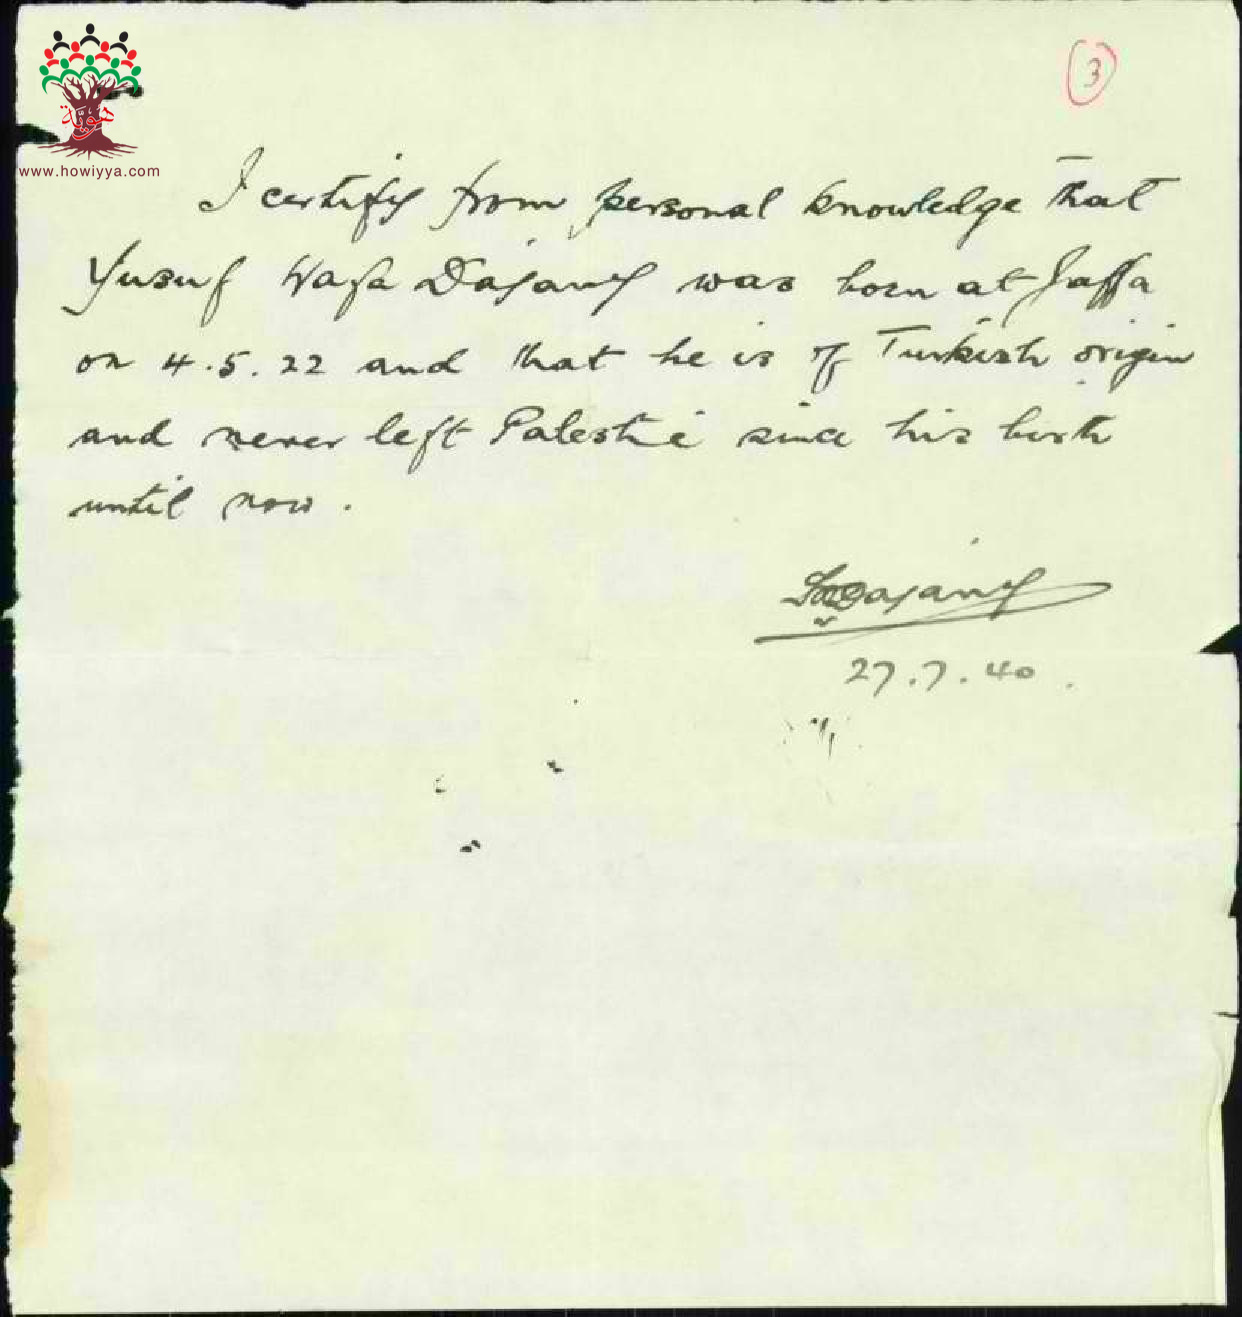 هوية
www.howiyya.com
3
I certify from personal knowledge that
Yusuf Wafa Dajany was born at Jaffa
on 4.5.22 and that he is of Turkish origin
and never left Palestine since his birth
until now.
Dajany
27.7.40